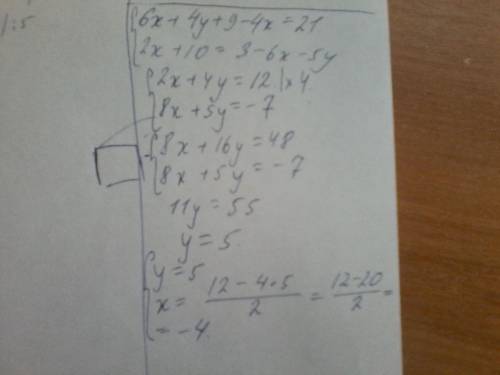 1:5
6x+4y+9-4x=21
2x+10=3-6x-5y
2x+4y=12|×4
8x+5y=-7
8x+16y=48
8x+5y=-7
11y=55
y=5
y=5
x= (12-4•5)/2 = (12-20)/2 =
=-4